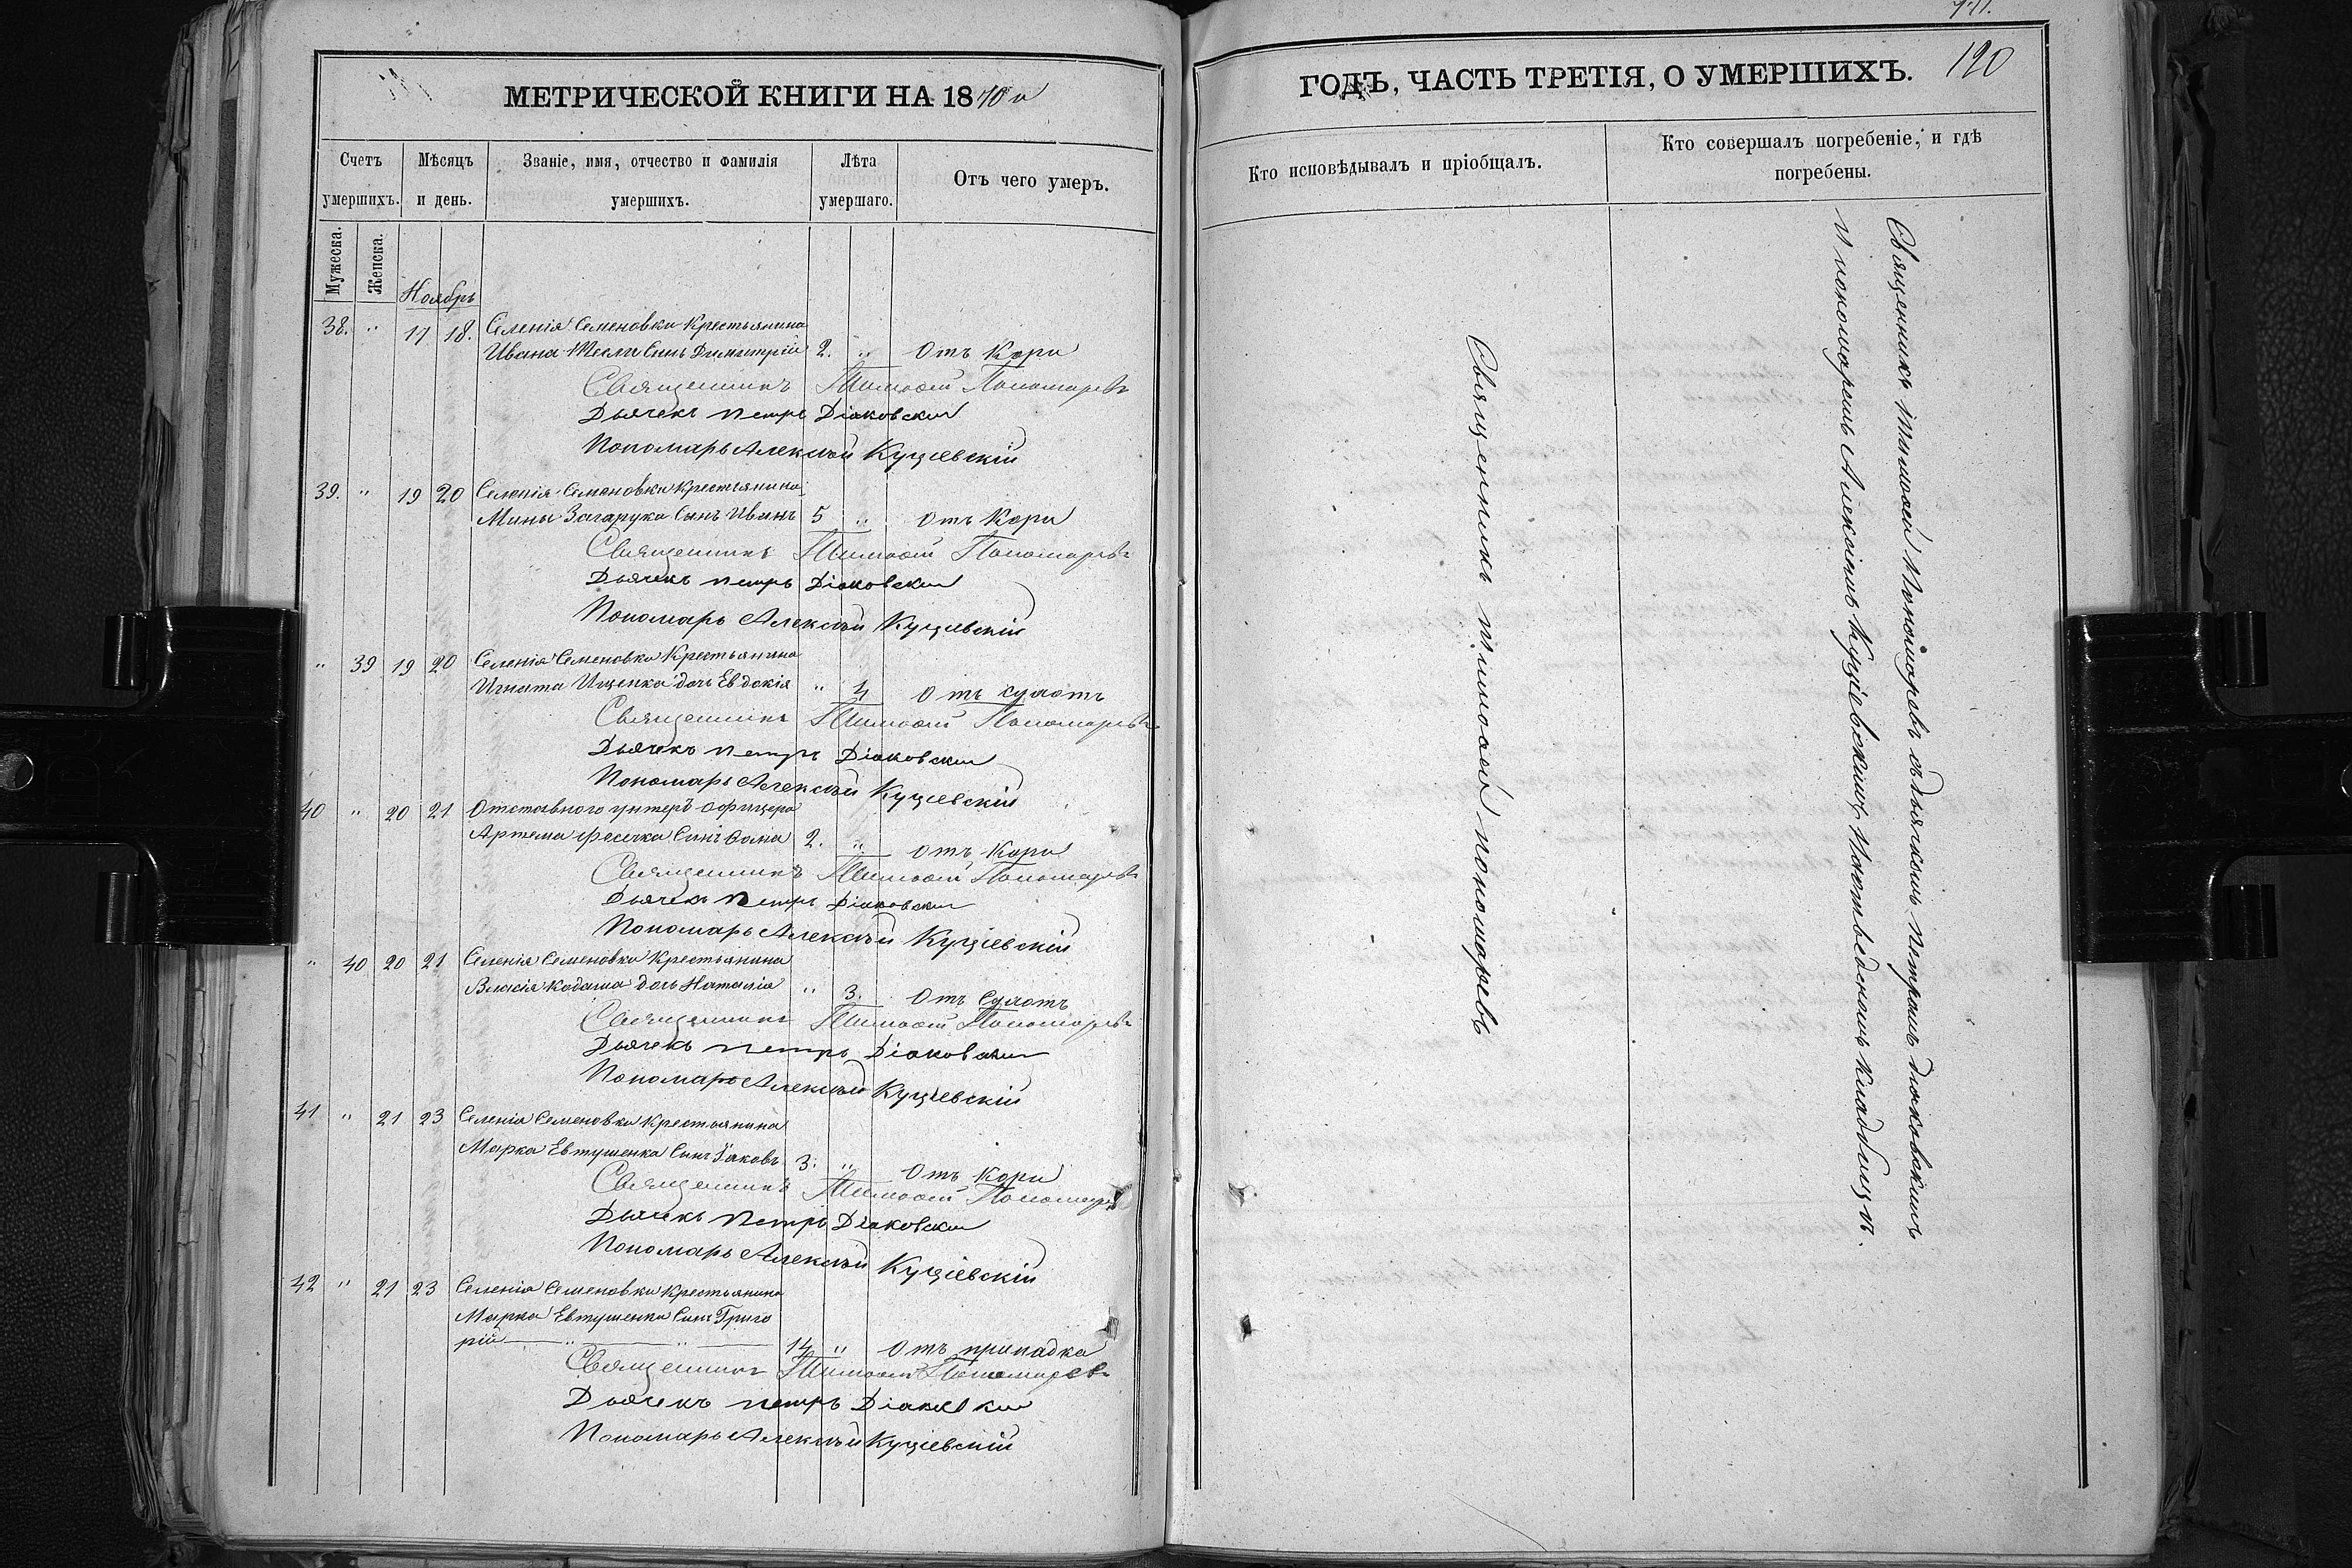 МЕТРИЧЕСКОЙ КНИГИ НА 1870 й
Счетъ умершихъ.
Мѣсяцъ и день.
Званіе, имя, отчество и фамилія умершихъ.
Лѣта умершаго.
Отъ чего умеръ.
Мужеска.
Женска.
Ноябрь
38. " 17 18. Селенія Семеновки Крестьянина
Ивана Тесли Сынъ Димитрій 2. " Отъ Кори
Священникъ Тимоѳей Пономаревъ
Дьячекъ Петръ Діаковскій
Пономарь Алексѣй Кущевскій
39. " 19 20 Селенія Семеновки Крестьянина
Мины Загарука Сынъ Иванъ 5 " Отъ Кори
Священникъ Тимоѳей Пономаревъ
Дьячекъ Петръ Діаковскій
Пономарь Алексѣй Кущевскій
" 39 19 20 Селенія Семеновки Крестьянина
Игната Ищенка дочь Евдокія " 4 Отъ сухотъ
Священникъ Тимоѳей Пономаревъ
Дьячекъ Петръ Діаковскій
Пономарь Алексѣй Кущевскій
40 " 20 21 Отставного унтеръ офицера
Артема Фесечка Сынъ Ѳома 2. " Отъ Кори
Священникъ Тимоѳей Пономаревъ
Дьячекъ Петръ Діаковскій
Пономарь Алексѣй Кущіевскій
" 40 20 21 Селенія Семеновки Крестьянина
Власія Кодаша дочь Наталія " 3. Отъ Сухотъ
Священникъ Тимоѳей Пономаревъ
Дьячекъ Петръ Діаковскій
Пономарь Алексѣй Кущіевскій
41 " 21 23 Селенія Семеновки Крестьянина
Марка Евтушенка Сынъ Іаковъ 3. " Отъ Кори
Священникъ Тимоѳей Пономаревъ
Дьячекъ Петръ Діаковскій
Пономарь Алексѣй Кущіевскій
42 " 21 23 Селенія Семеновки Крестьянина
Марка Евтушенка Сынъ Григо
рій 14 " Отъ припадка
Священникъ Тимоѳей Пономаревъ
Дьячекъ Петръ Діаковскій
Пономарь Алексѣй Кущіевскій
ГОДЪ, ЧАСТЬ ТРЕТІЯ, О УМЕРШИХЪ. 120
Кто исповѣдывалъ и пріобщалъ.
Кто совершалъ погребеніе, и гдѣ
погребены.
Священникъ Тимоѳей Пономаревъ
Священникъ Тимоѳей Пономаревъ съ дьячкомъ Петромъ Діаковскимъ
и пономаремъ Алексѣемъ Кущіевскимъ, на отведеномъ кладбищѣ.